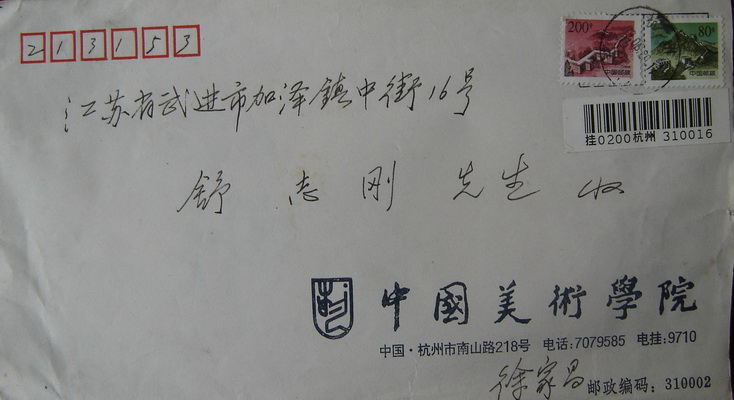 213153
200分
中国邮政
80分
中国邮政
挂0200杭州 310016
江苏省武进市加泽镇中街16号
舒志刚 先生 收
中國美術學院
中国·杭州市南山路218号 电话:7079585 电挂:9710
徐家昌 邮政编码:310002